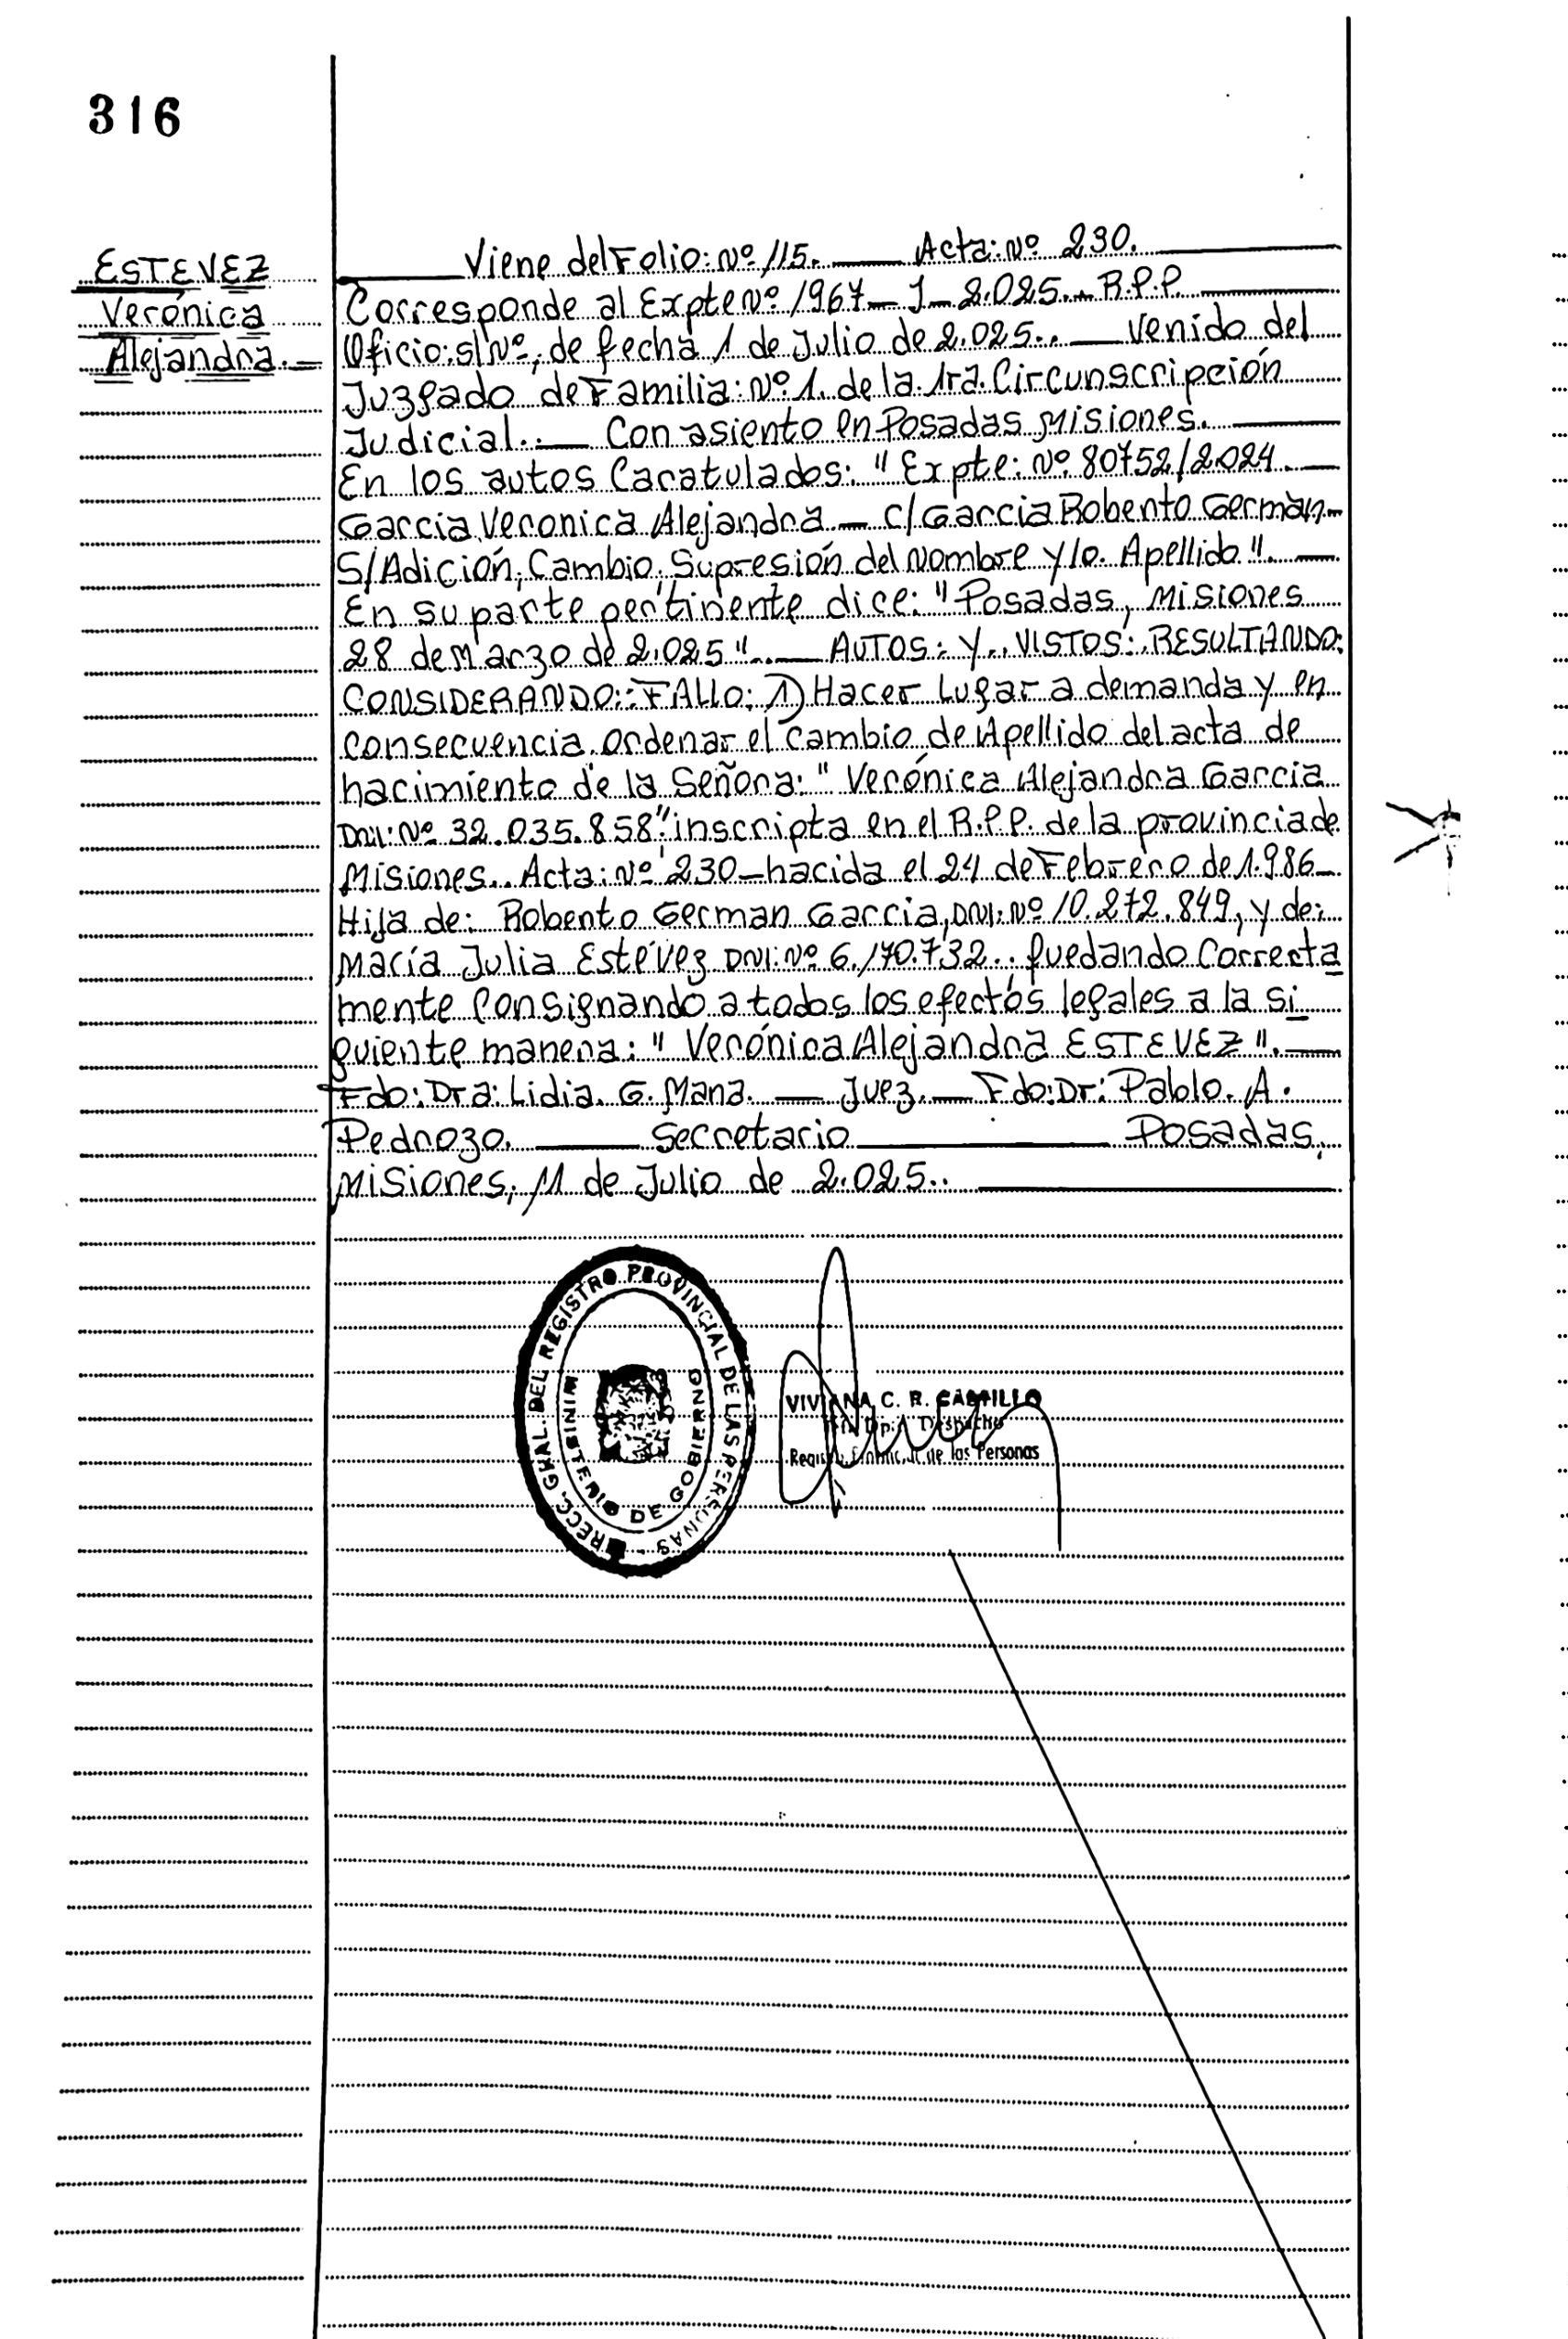 316
ESTEVEZ
Verónica
Alejandra.
Viene del Folio: Nº 115. Acta: Nº 230.
Corresponde al Expte Nº 1967-J-2.025.. R.P.P
Oficio: s/Nº, de fecha 1 de Julio de 2.025.. Venido del
Juzgado de Familia: Nº 1. de la 1ra. Circunscripción
Judicial.. Con asiento en Posadas Misiones.
En los autos Caratulados: "Expte: Nº 80752/2024.
Garcia Veronica Alejandra - c/ Garcia Roberto German-
S/Adición, Cambio, Supresión del Nombre y/o. Apellido".
En su parte pertinente dice: "Posadas, Misiones
28 de Marzo de 2.025".. AUTOS: Y.. VISTOS:. RESULTANDO:
CONSIDERANDO:: FALLO: 1) Hacer Lugar a demanda y en
consecuencia. ordenar el cambio de Apellido del acta de
nacimiento de la Señora: "Verónica Alejandra Garcia
DNI: Nº 32.035.858" inscripta en el R.P.P. de la provincia de
Misiones.. Acta: Nº 230-nacida el 24 de Febrero de 1.986-
Hija de: Roberto German Garcia, DNI: Nº 10.272.849, y de:
María Julia Estévez DNI: Nº 6.170.732.. quedando Correcta
mente Consignando a todos los efectos legales a la si
guiente manera: "Verónica Alejandra ESTEVEZ".
Fdo: Dra: Lidia. G. Mana. Juez. Fdo: Dr: Pablo. A.
Pedrozo. Secretario Posadas,
Misiones, 11 de Julio de 2.025..
RECC. GRAL. DEL REGISTRO PROVINCIAL DE LAS PERSONAS
MINISTERIO DE GOBIERNO
VIVIANA C. R. CASTILLO
Despacho
de las Personas